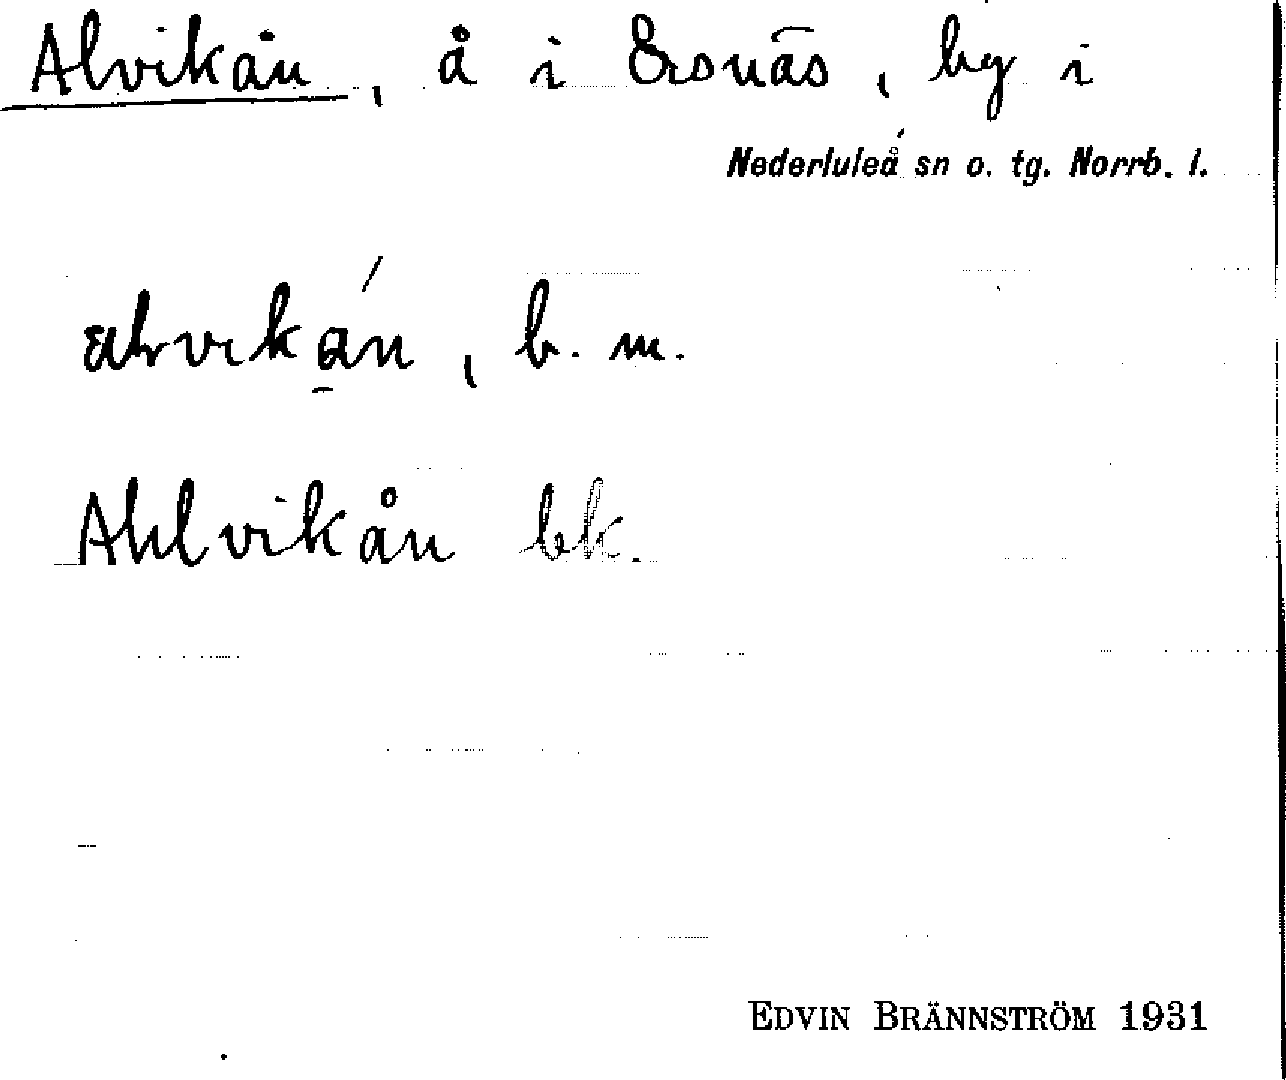 Alvikån, å i Ersnäs, by i
Nederluleå sn o. tg. Norrb. l.
alvikån, b. m.
Ahlvikån bk.
EDVIN BRÄNNSTRÖM 1931